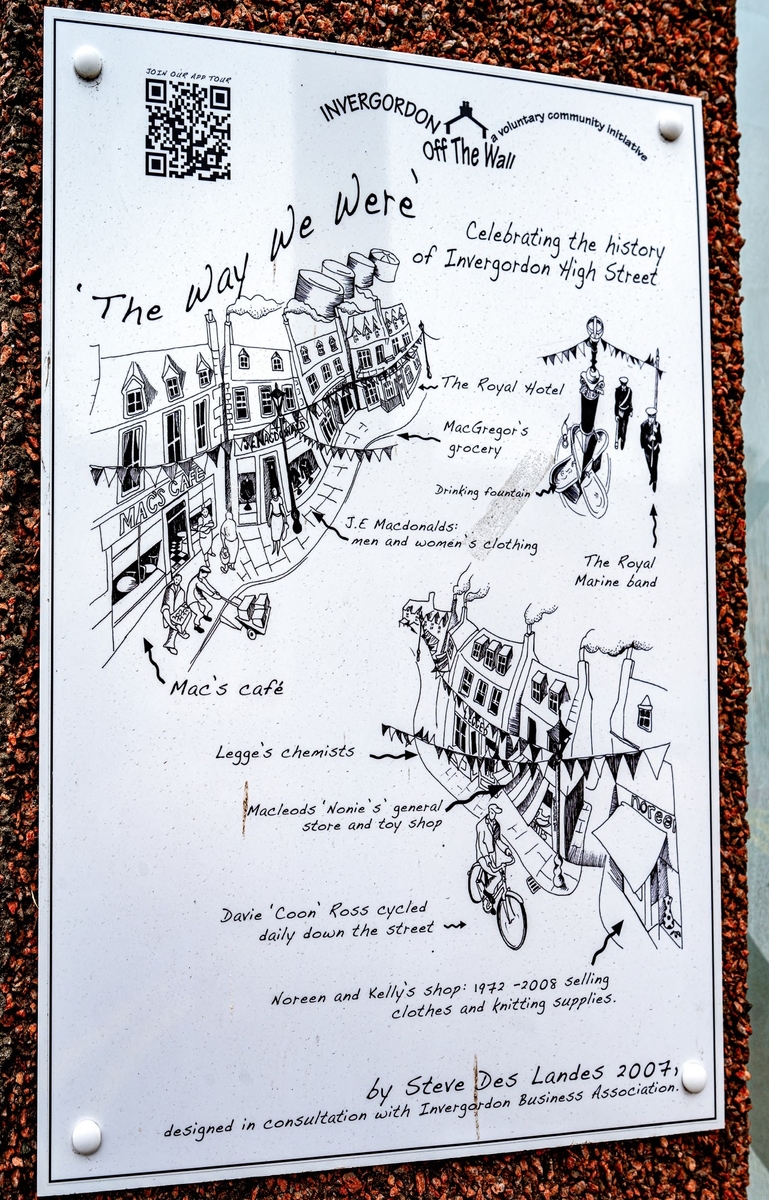 JOIN OUR APP TOUR
INVERGORDON
Off The Wall
a voluntary community initiative
'The Way We Were'
Celebrating the history
of Invergordon High Street
The Royal Hotel
MacGregor's
grocery
Drinking fountain
J.E. MACDONALDS
MAC'S CAFE
J.E Macdonalds:
men and women's clothing
The Royal
Marine band
Mac's café
Legge's chemists
Macleods 'Nonie's' general
store and toy shop
Davie 'Coon' Ross cycled
daily down the street
Noreen and Kelly's shop: 1972 -2008 selling
clothes and knitting supplies.
by Steve Des Landes 2007,
designed in consultation with Invergordon Business Association.